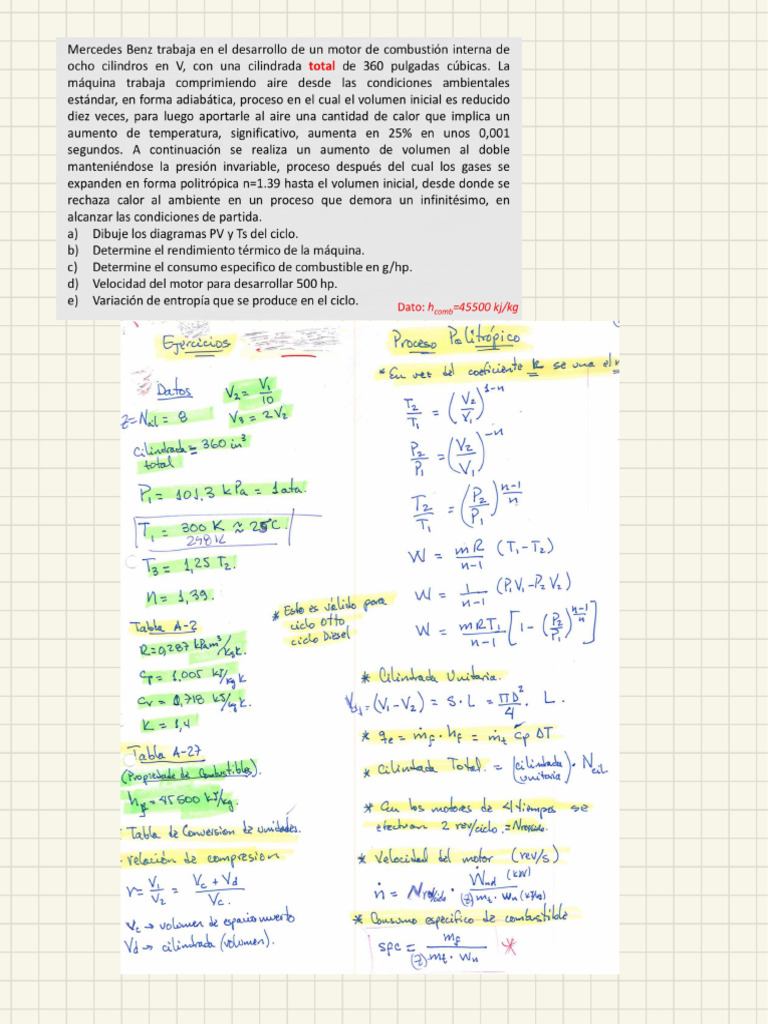 Mercedes Benz trabaja en el desarrollo de un motor de combustión interna de
ocho cilindros en V, con una cilindrada total de 360 pulgadas cúbicas. La
máquina trabaja comprimiendo aire desde las condiciones ambientales
estándar, en forma adiabática, proceso en el cual el volumen inicial es reducido
diez veces, para luego aportarle al aire una cantidad de calor que implica un
aumento de temperatura, significativo, aumenta en 25% en unos 0,001
segundos. A continuación se realiza un aumento de volumen al doble
manteniéndose la presión invariable, proceso después del cual los gases se
expanden en forma politrópica n=1.39 hasta el volumen inicial, desde donde se
rechaza calor al ambiente en un proceso que demora un infinitésimo, en
alcanzar las condiciones de partida.
a) Dibuje los diagramas PV y Ts del ciclo.
b) Determine el rendimiento térmico de la máquina.
c) Determine el consumo especifico de combustible en g/hp.
d) Velocidad del motor para desarrollar 500 hp.
e) Variación de entropía que se produce en el ciclo.
Dato: h_comb=45500 kj/kg
Ejercicios
Datos
V₂ = V₁/10
Z = Ncil = 8
V₃ = 2V₂
Cilindrada = 360 in³
total
P₁ = 101,3 kPa = 1 ata.
T₁ = 300 K ≈ 25°C.
298K
T₃ = 1,25 T₂.
n = 1,39.
* Esto es válido para
ciclo Otto
ciclo Diesel
Tabla A-2
R = 0,287 kPa m³/kg K.
Cp = 1,005 kJ/kg K
Cv = 0,718 kJ/kg K.
K = 1,4
Tabla A-27
(Propiedades de Combustibles).
hf = 45500 kJ/kg.
- Tabla de Conversion de unidades.
- relación de compresion
r = V₁/V₂ = (Vc + Vd)/Vc.
Vc → volumen de espacio muerto
Vd → cilindrada (volumen).
Proceso Politrópico
* En vez del coeficiente K se usa el n
T₂/T₁ = (V₂/V₁)^(1-n)
P₂/P₁ = (V₂/V₁)^(-n)
T₂/T₁ = (P₂/P₁)^((n-1)/n)
W = mR/(n-1) (T₁-T₂)
W = 1/(n-1) (P₁V₁-P₂V₂)
W = mRT₁/(n-1) [1 - (P₂/P₁)^((n-1)/n)]
* Cilindrada Unitaria.
= (V₁-V₂) = S·L = πD²/4 . L.
* qe = ṁf · hf = ṁt cp ΔT
* Cilindrada Total. = (cilindrada unitaria) · Ncil
* En los motores de 4 tiempos se
efectuan 2 rev/ciclo. =
* Velocidad del motor (rev/s)
ṅ = · Ẇnd (kW)/((z) mt · wn (kJ/kg))
* Consumo especifico de combustible
spc = mf/((z) mt · wn) *